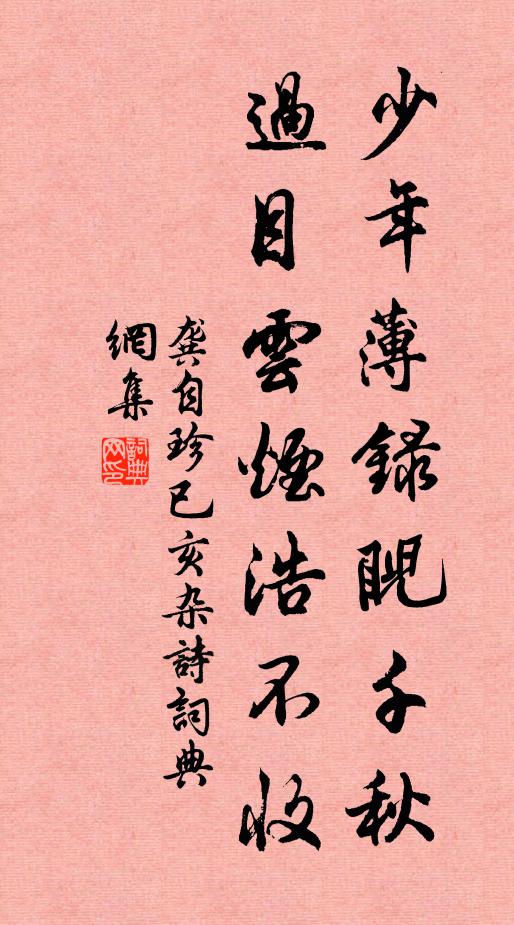 少年薄錄睨千秋
過目雲煙浩不收
龔自珍已亥杂詩詞典
網集
詞典
网印